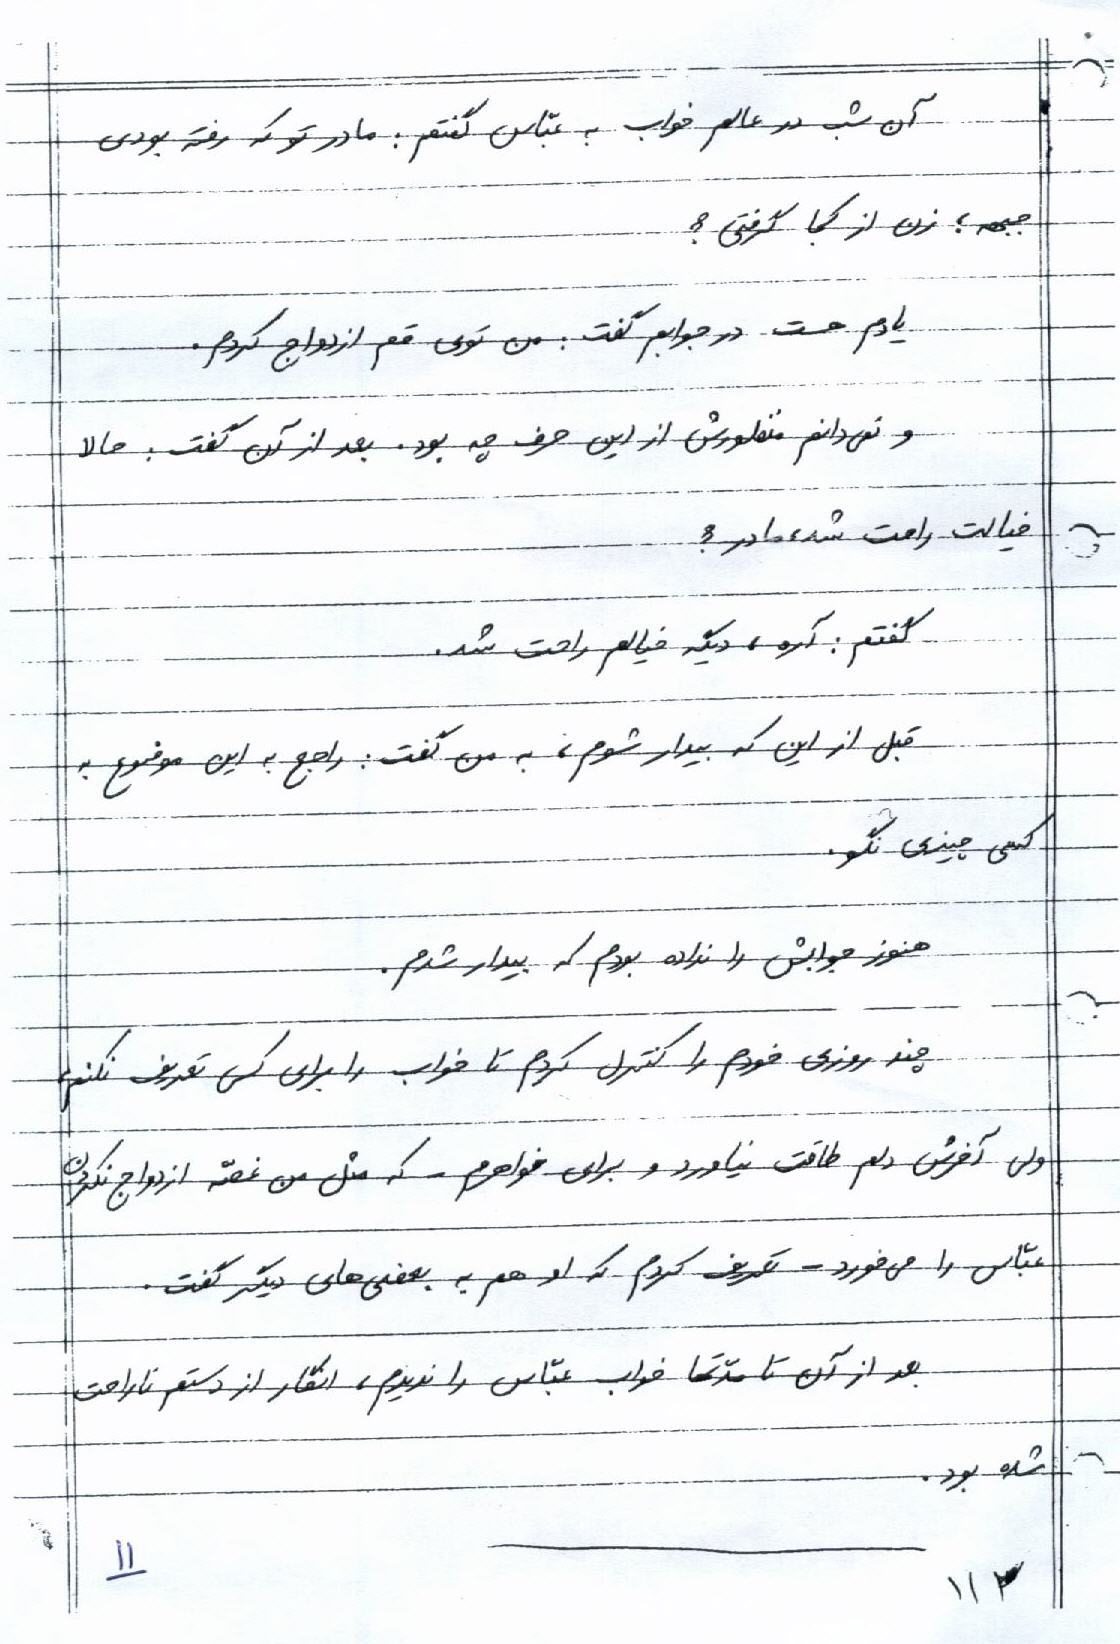 آن شب در عالم خواب به عبّاس گفتم: مادر تو که رفته بودی
جبهه، زن از کجا گرفتی؟
یادم هست در جوابم گفت: من توی قم ازدواج کردم.
و نمی‌دانم منظورش از این حرف چه بود. بعد از آن گفت: حالا
خیالت راحت شد، مادر؟
گفتم: آره، دیگه خیالم راحت شد.
قبل از این که بیدار شوم، به من گفت: راجع به این موضوع به
کسی چیزی نگو.
هنوز جوابش را نداده بودم که بیدار شدم.
چند روزی خودم را کنترل کردم تا خواب را برای کسی تعریف نکنم،
ولی آخرش دلم طاقت نیاورد و برای خواهرم - که مثل من غصّه ازدواج نکردن
عبّاس را می‌خورد - تعریف کردم که او هم به بعضی‌های دیگر گفت.
بعد از آن تا مدّتها خواب عبّاس را ندیدم، انگار از دستم ناراحت
شده بود.
۱۱
۱۱۳